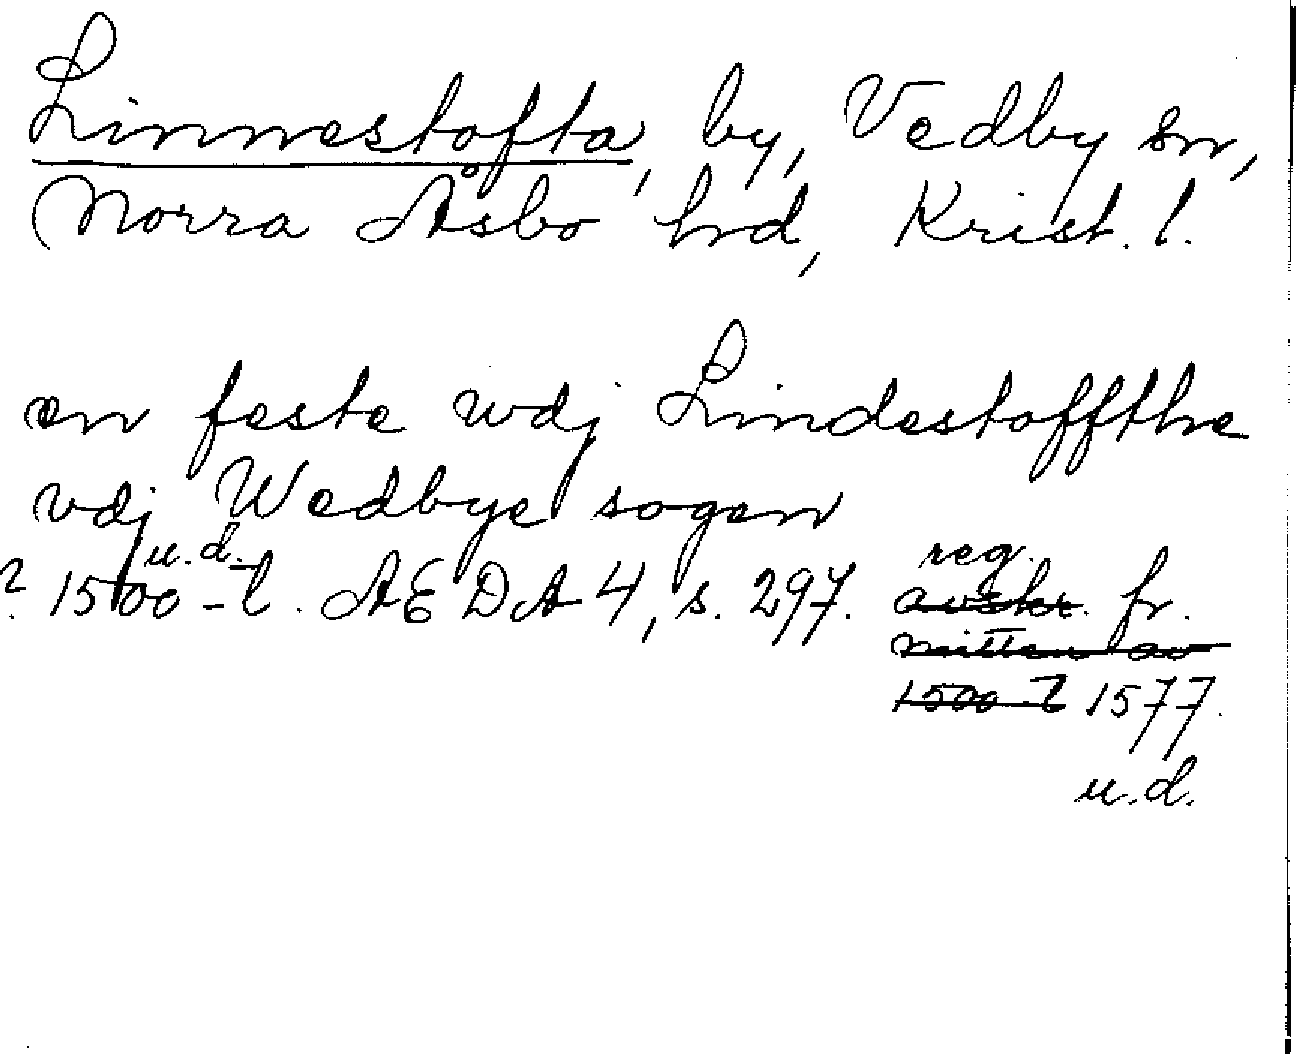 Linnestofta, by, Vedby sn,
Norra Åsbo hrd, Krist. l.
en feste wdj Lindestoffthe
vdj Wedbye sogen
u.d.
? 1500-t. AEDA 4, s. 297. reg. fr.
avskr.
mitten av
1500-t 1577.
u.d.